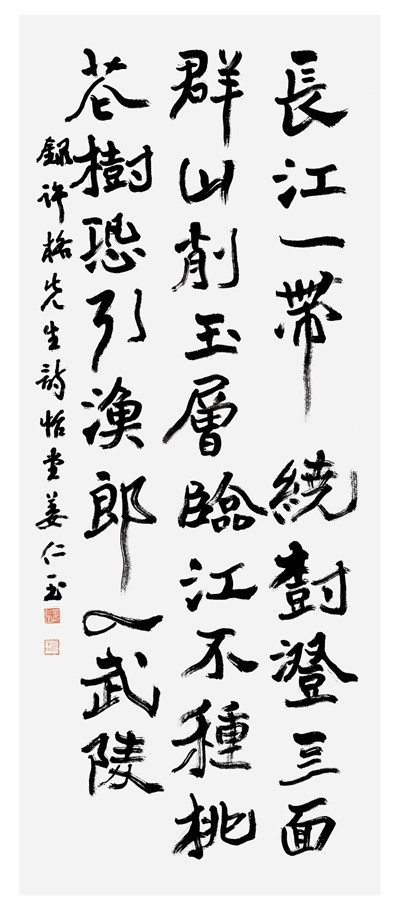 長江一帶繞澄三面
群山削玉層臨江不種桃
花樹恐引漁郎入武陵
錄許格先生詩怡堂姜仁玉